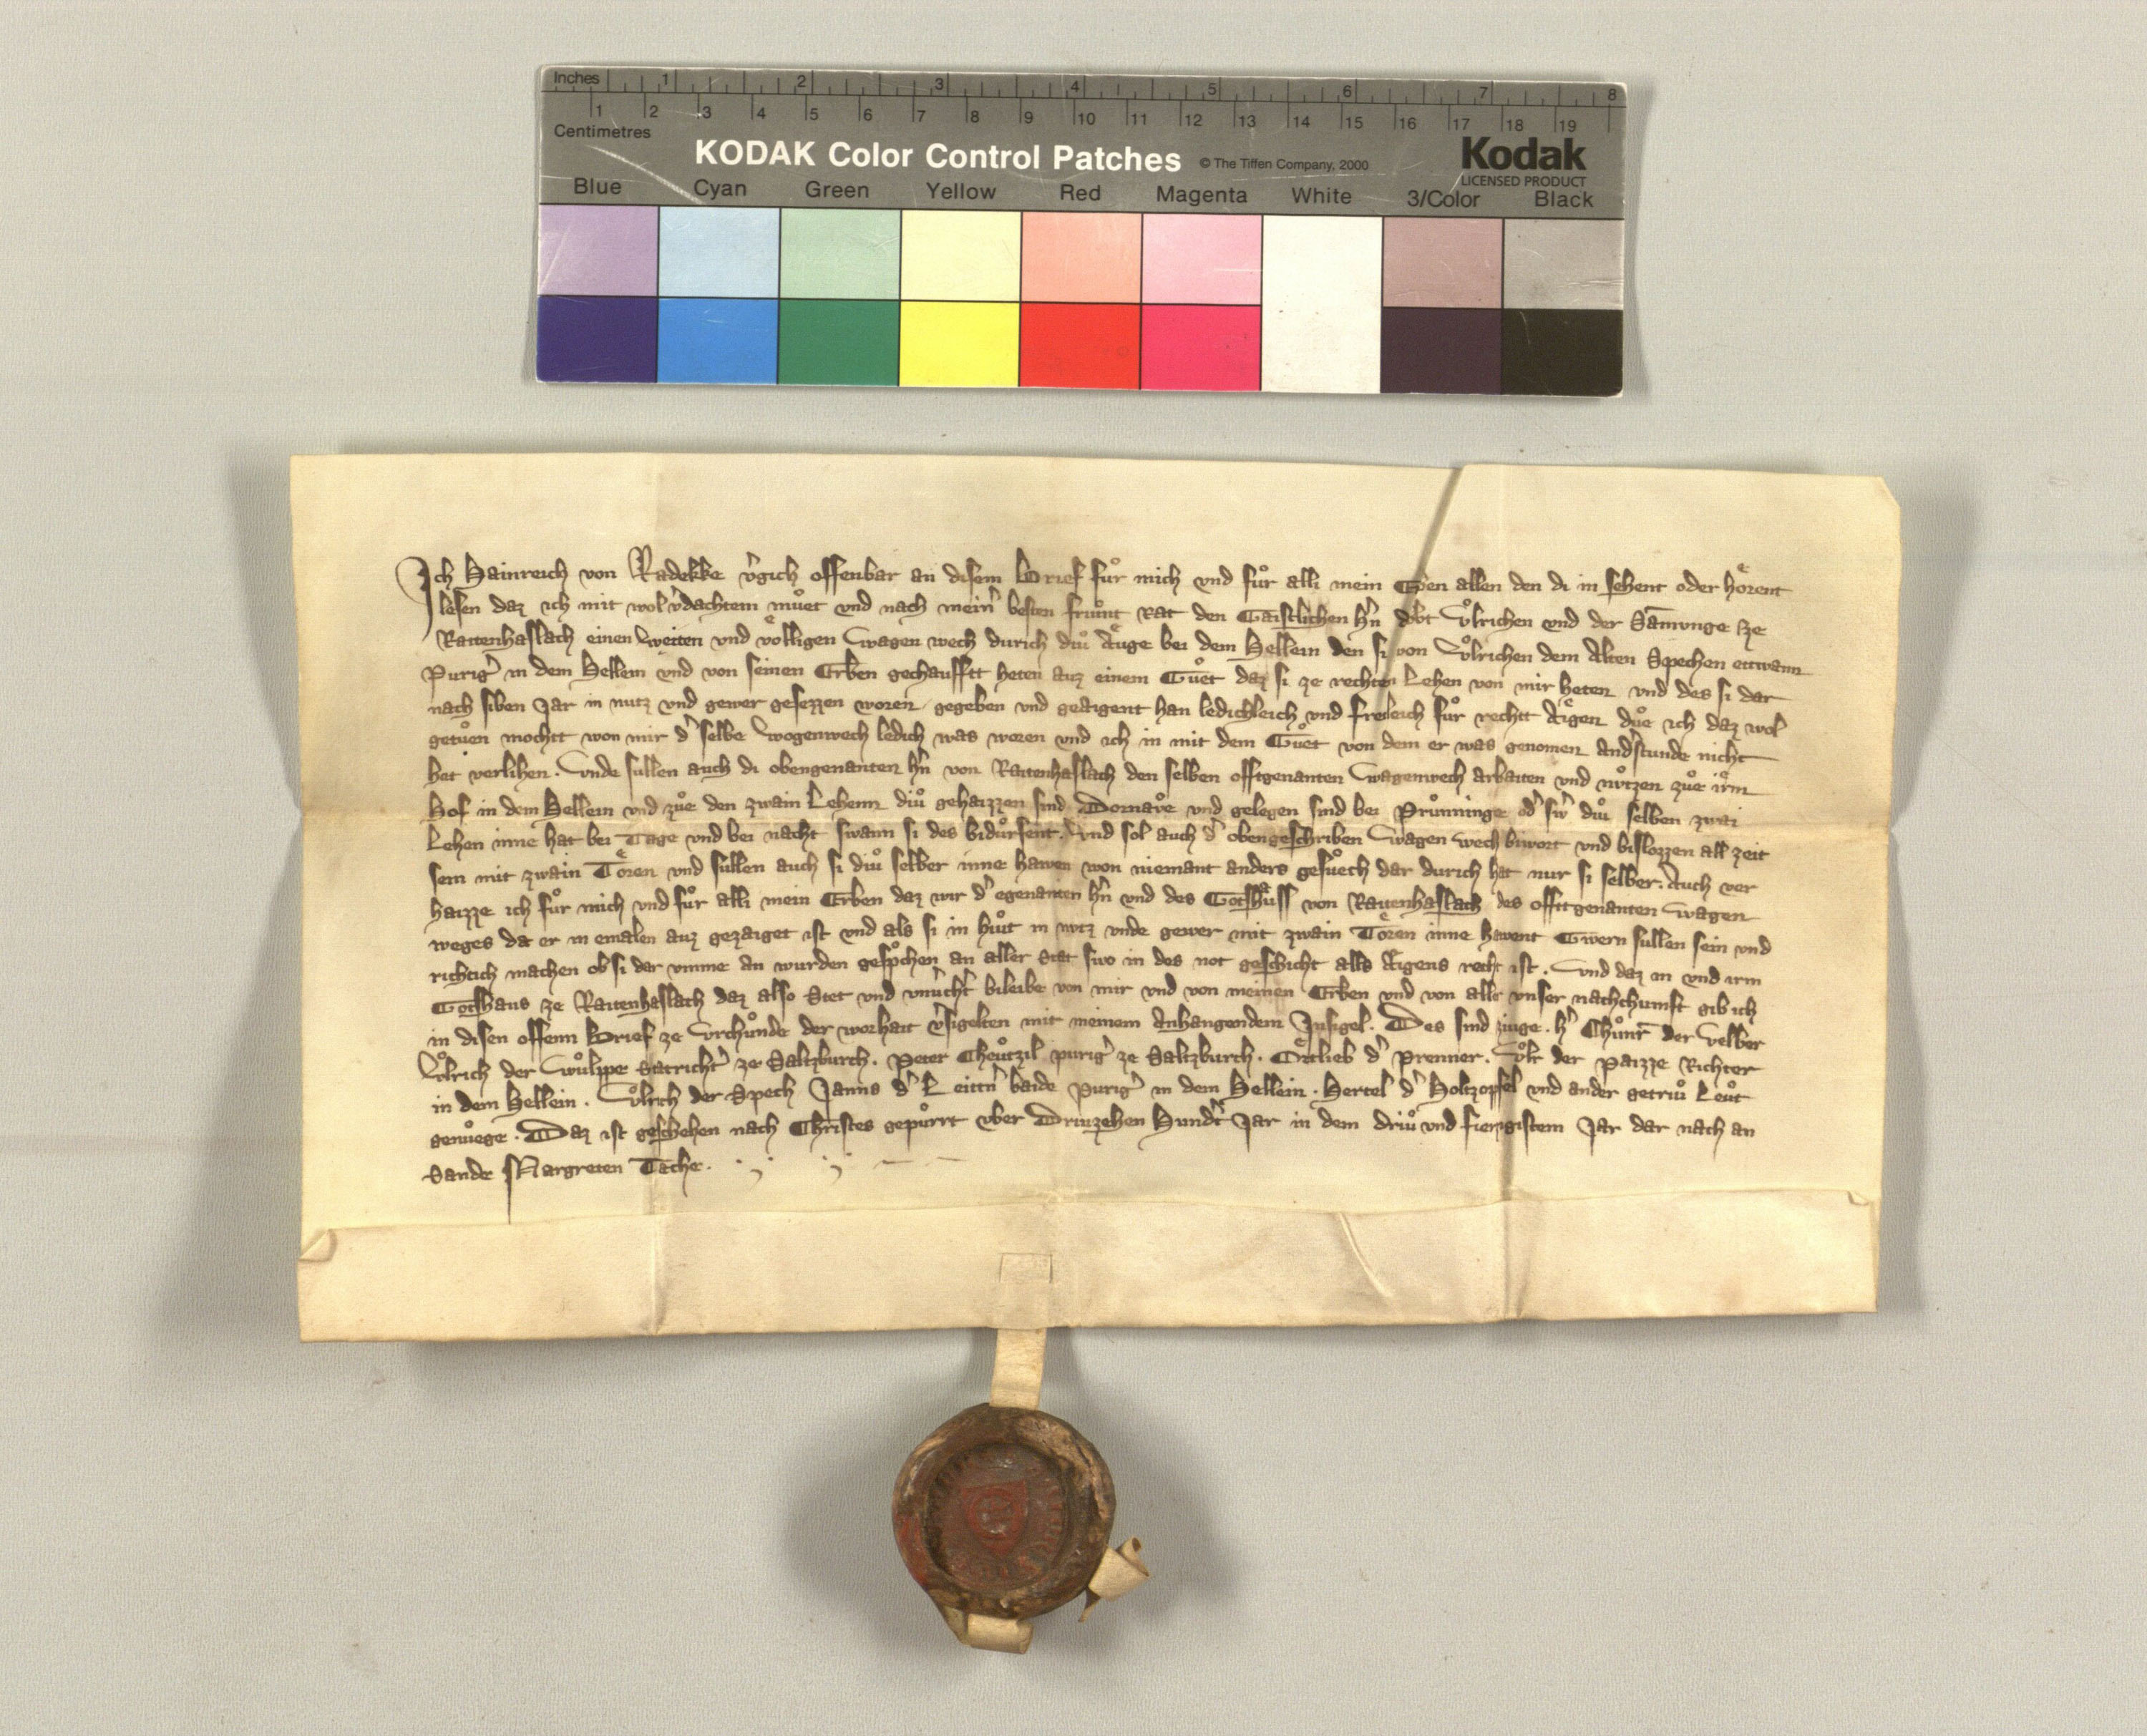 Inches 1 2 3 4 5 6 7 8
1 2 3 4 5 6 7 8 9 10 11 12 13 14 15 16 17 18 19
Centimetres
KODAK Color Control Patches © The Tiffen Company, 2000 Kodak
LICENSED PRODUCT
Blue Cyan Green Yellow Red Magenta White 3/Color Black
Ich Hainreich von Radekke v̾gich offenbar an disem brief fuͦr mich vnd fuͦr alli mein allen den di in sehent oder hoͤrent
lesen daz ich mit wolv̾dachtem muͦet vnd nach mein̾ besten friuͦnt rat den Gaistlichen hn̾ Vͦlrichen vnd der Samͣvnge ze
Raitenhaslach einen weiten vnd voͤlligen wagen wech durich diuͦ Aͤuge bei dem Hellein den si von Vͦlrichen dem Alten Spechen ettwenn
Purig̾ in dem Hellein vnd von seinen Erben gechaufftt heten auz einem Guͦet daz si ze rechten Lehen von mir heten vnd des si dar
nach siben Jar in nutz vnd gewer gesezzen woren gegeben vnd geaigent han ledichleich vnd freileich fuͦr rechtt Aͤigen duͦe ich daz wol
getuͦen mochtt won mir d̾ selbe wogenwech ledich was woren vnd ich in mit dem Guͦet von dem er was genomen and̾stunde nicht
het verlihen. Vnde sullen auch di obengenanten hn̾ von Raitenhaslach den selben offtgenanten wagenwech arbaiten vnd nuͦtzen zuͦe irm
Hof in dem Hellein vnd zuͦe den zwain Lehenn diuͦ gehaizzen sind Dornaͦve vnd gelegen sind bei Pruͦnninge od̾ sw̾ diuͦ selben zwai
Lehen inne hat bei Tage vnd bei nacht swann si des biduͦrfent. Vnd sol auch d̾ obengeschriben wagen wech biwort vnd bislozzen all zeit
sein mit zwain Toͤren vnd sullen auch si diuͦ selber inne haven won niemant anders gesuͦech dar durich hat nur si selber. Auch ver
haizze ich fuͦr mich vnd fuͦr alli mein Erben daz wir d̾ egenanten hn̾ vnd des Gotshuͣss von Raitenhaslach des offttgenanten wagen
weges da er in emalen auz gezaiget ist vnd als si in hiuͦt in nutz vnde gewer mit zwain Toͤren inne havent Gwern sullen sein vnd
richtich machen ob si dar vmme an wurden gespͦchen an aller stat swo in des not geschicht alls Aͤigens recht ist. Vnd daz in vnd irm
Gotshaus ze Raitenhaslach daz also Stet vnd bileibe von mir vnd von meinen Erben vnd von aller vnser nachchumft gib ich
in disen offenn brief ze Vrchuͦnde der worhait v̾sigelten mit meinem Anhangendem Insigel. Des sind ziuge. h̾ Chuͦnr̄ der Velber
Vͦlrich der wuͦlppe Statricht̾ ze Saltzburch. Peter Cheutzil purig̾ ze Saltzburch. Oͤrtlieb d̾ Prenner. Vͦlr der Paizze Richter
in dem Hellein. Vͦlrich der Spech Janns d̾ Leittn̾ baide Purig̾ in dem Hellein. Hertel d̾ Holtzopfel vnd ander getriuͦ Leuͦt
genuͦege. Daz ist geschehen nach Christes gepuͦrrt vber Driuzehen Hundt̾ Jar in dem driuͦ vnd fierzigistem Jar dar nach an
Sande Margreten Tache.